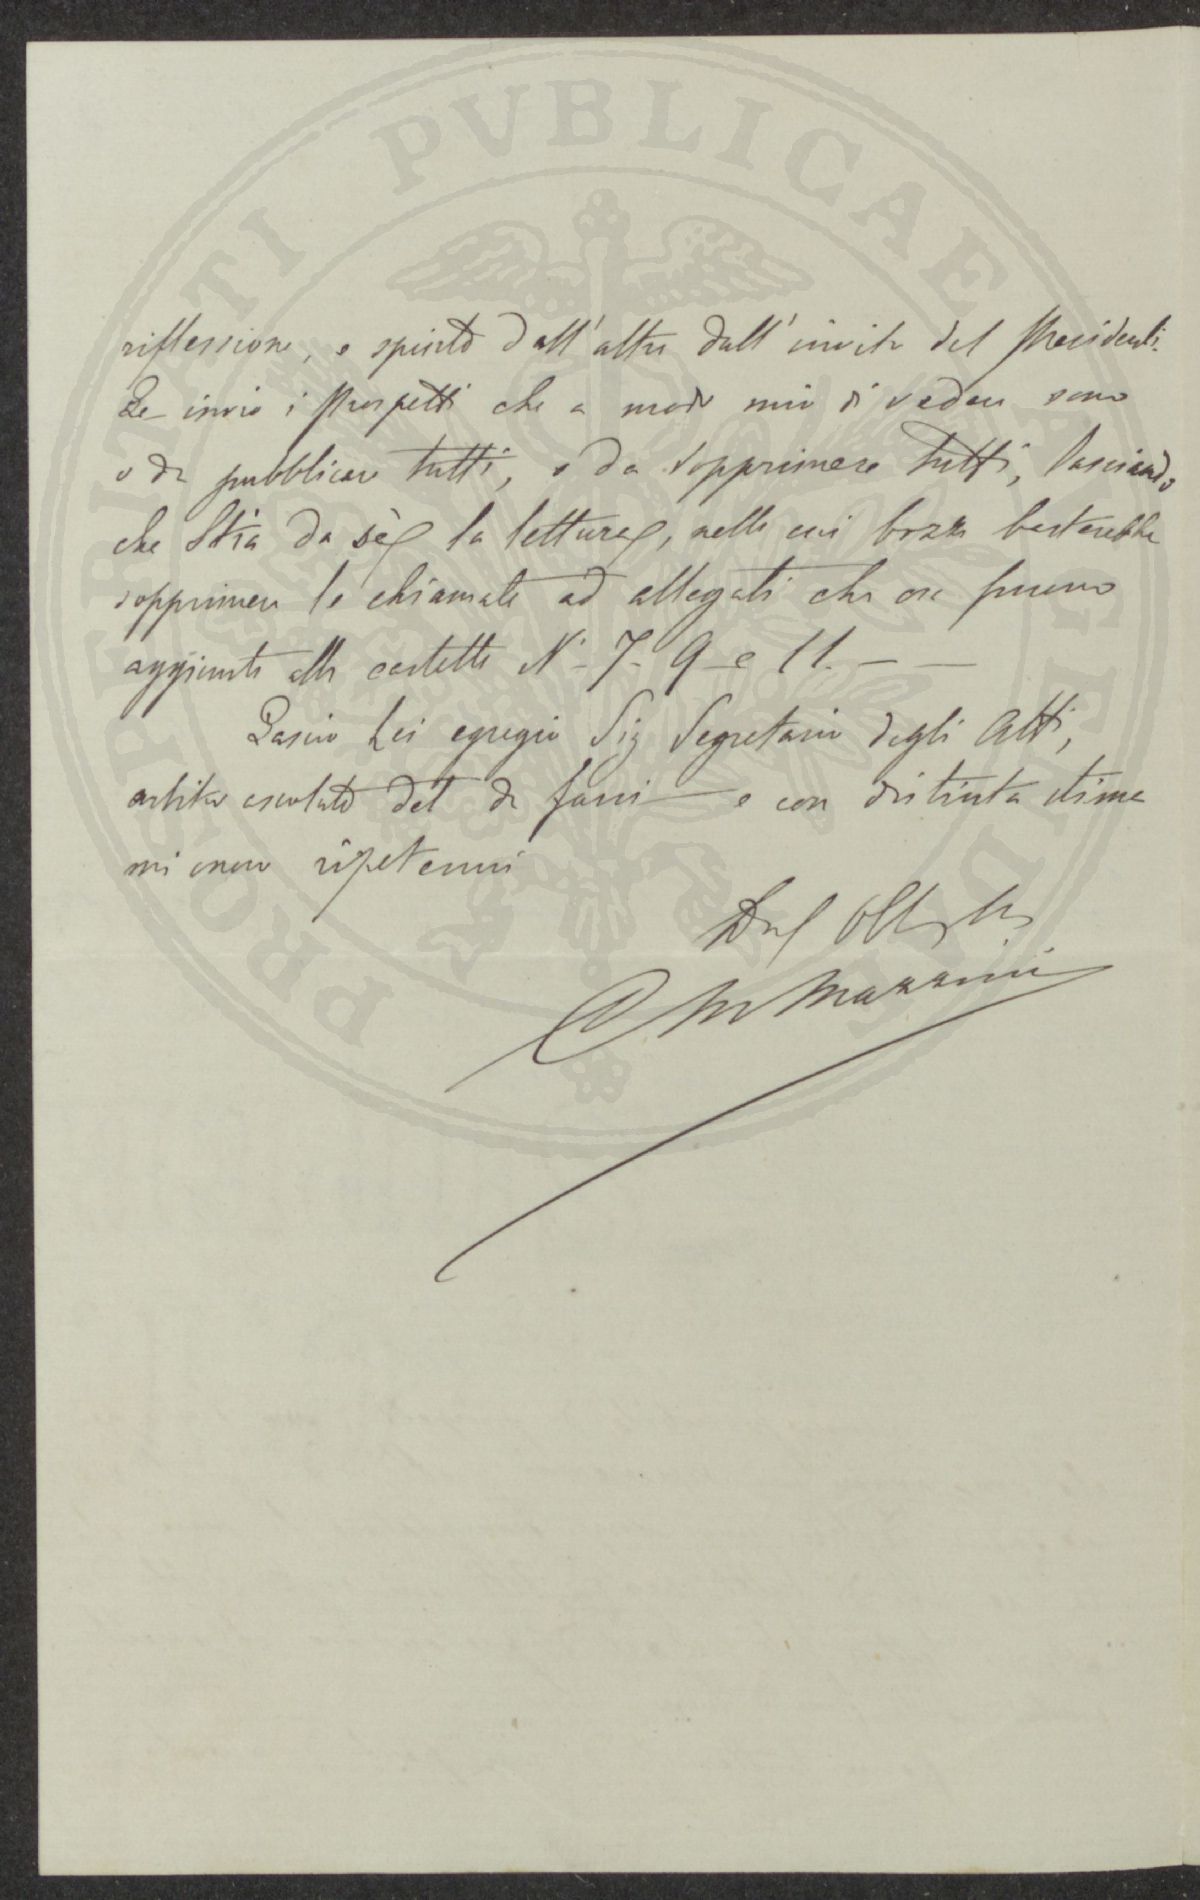 PROSPERITATI PVBLICAE AVGENDAE
riflessione, e spinto dall'altra dall'invito del Presidente.
Le invio i Prospetti che a modo mio di vedere sono
o da pubblicare tutti, o da sopprimere tutti, lasciando
che stia da sè la lettura, nelle cui bozze basterebbe
sopprimere le chiamate ad allegati che ora furono
aggiunte alle cartelle N. 7. 9 e 11. — —
Lascio Lei egregio Sig Segretario degli Atti,
arbitro del da farsi — e con distinta stima
mi onoro ripetermi
Mazzini